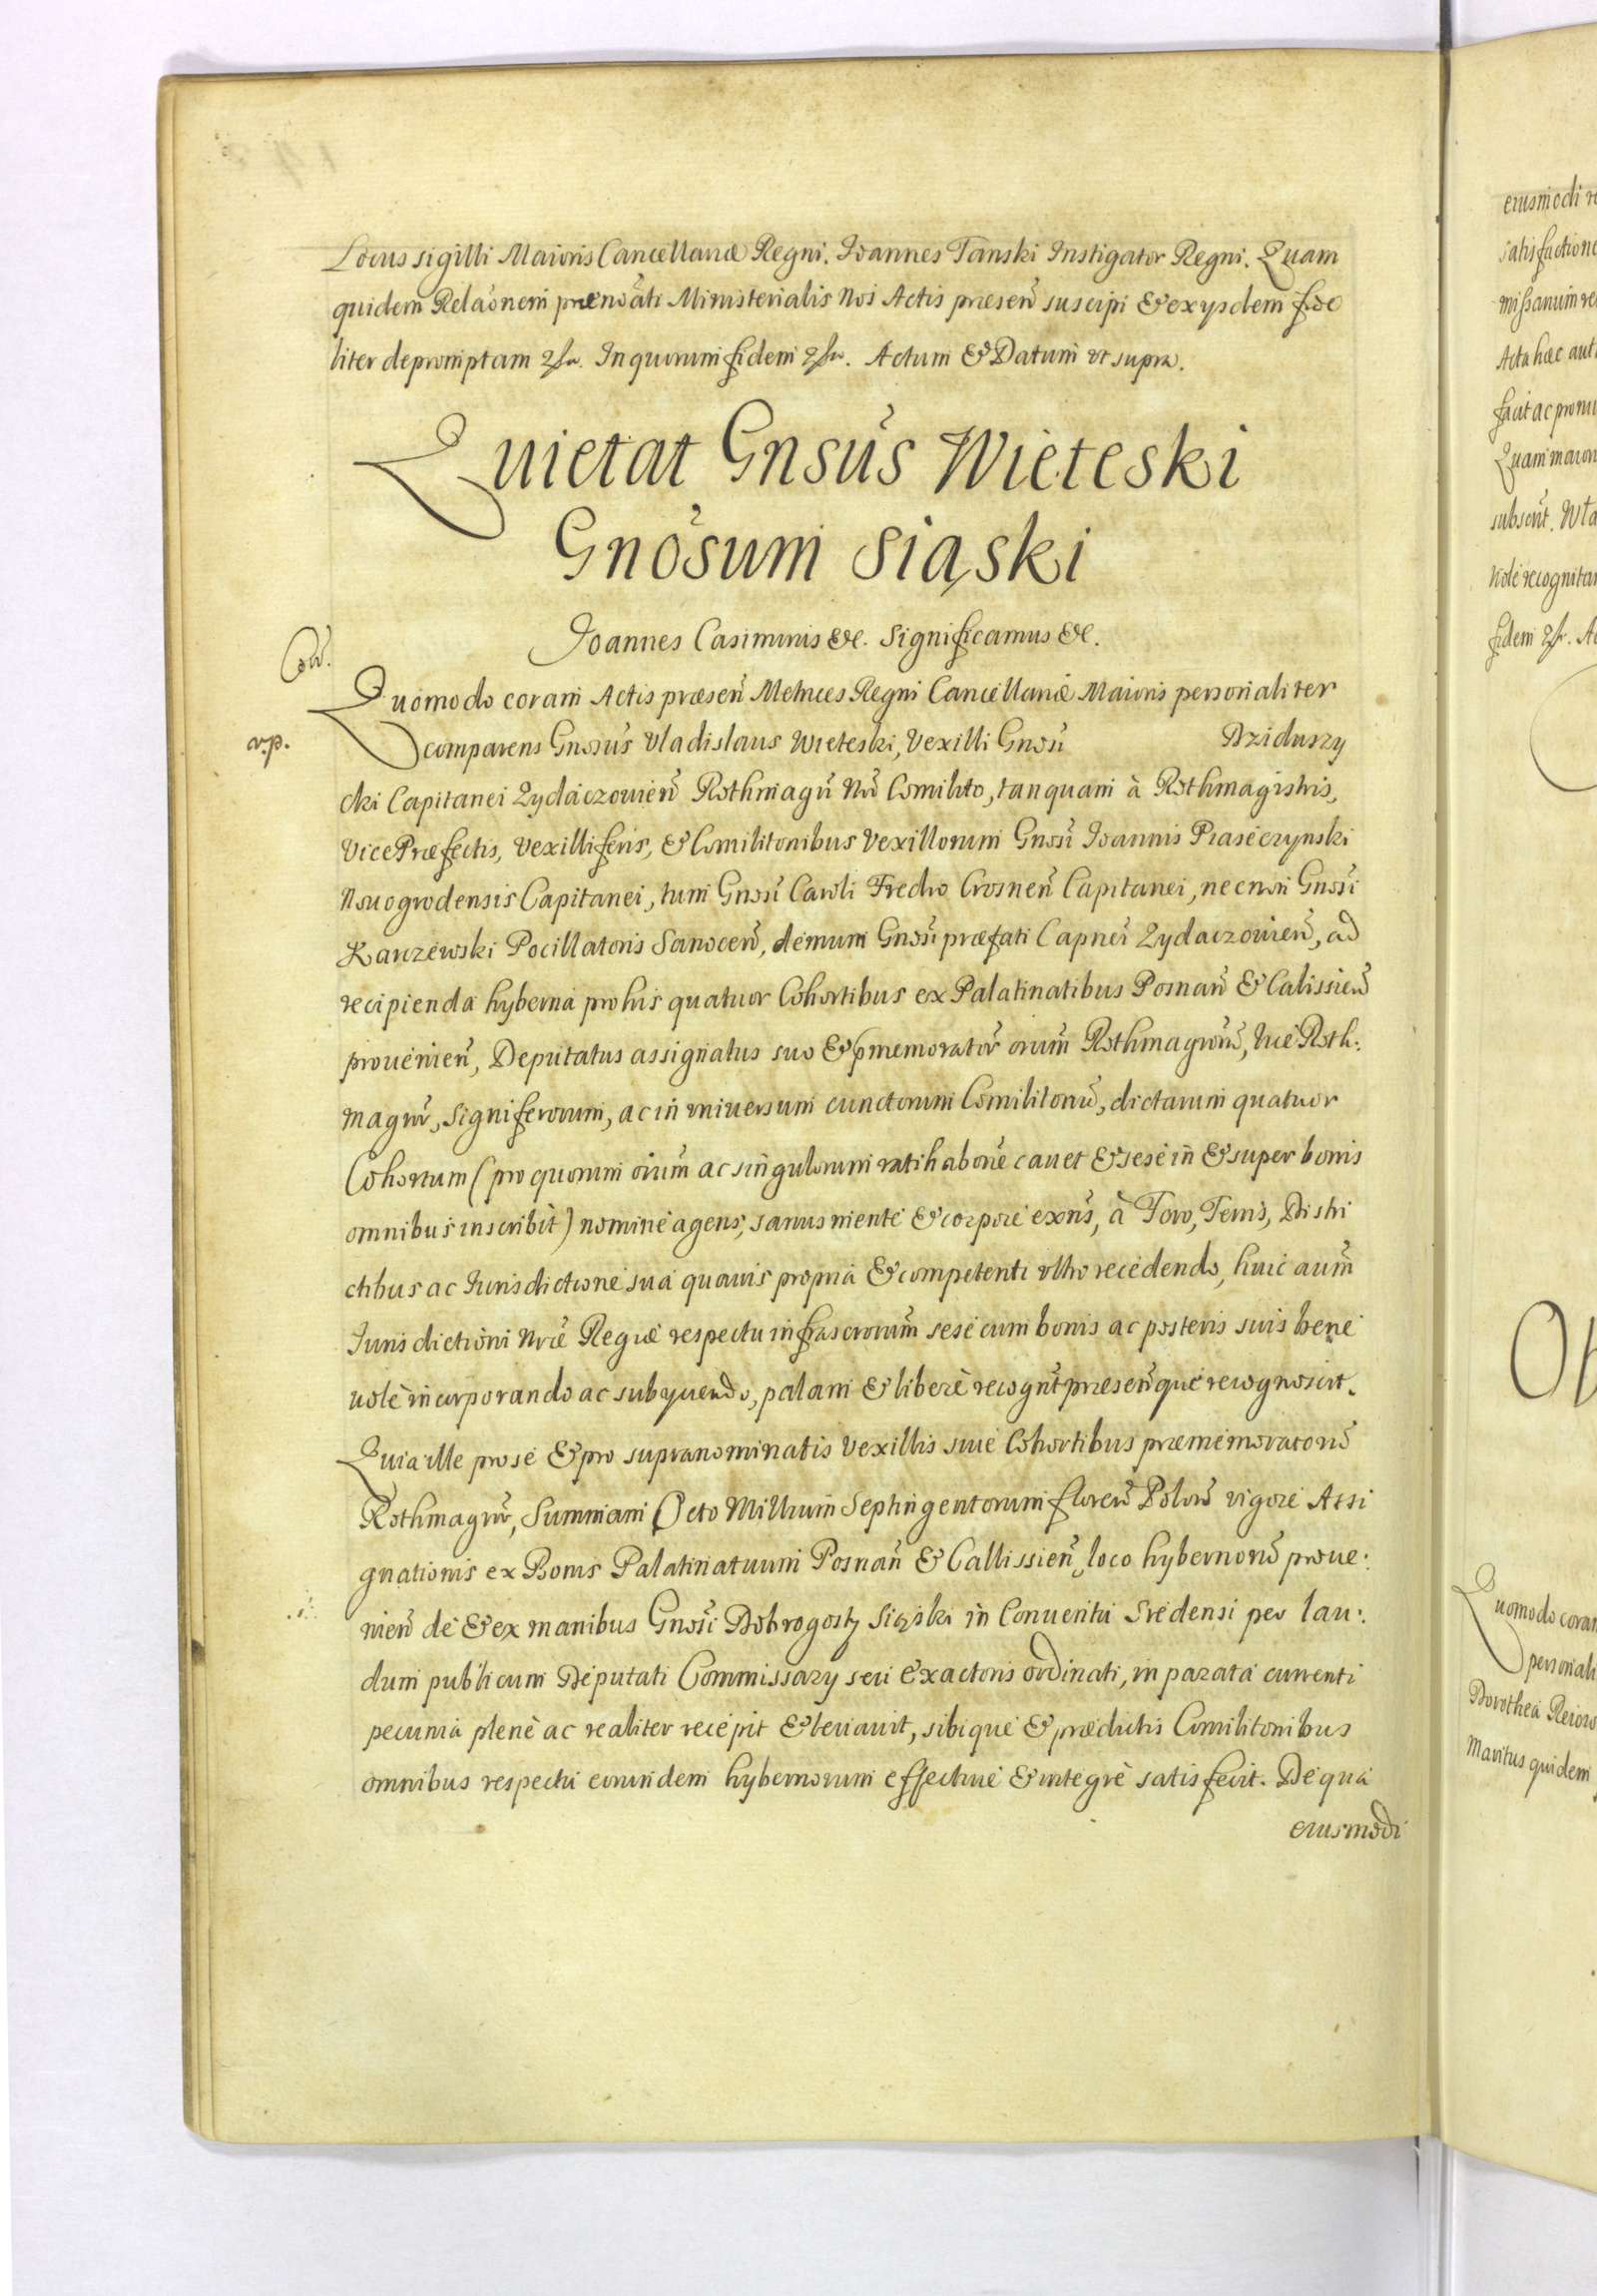 Locus sigilli Maioris Cancellariæ Regni. Joannes Tanski Instigator Regni. Quam
quidem Relãonem prænoãti Ministerialis Nos Actis præseñ suscipi & exysdem fide
liter depromptam In quorum fidem Actum & Datum vt supra.
Quietat Gnsũs Wieteski
Gnõsum Siąski
Joannes Casimirus &c. Significamus &c.
Quomodo coram Actis præseñ Metrices Regni Cancellariæ Maioris personaliter
v.p.
comparens Gnosũs Vladislaus Wieteski, Vexilli Gnosi Dziduszy
cki Capitanei Zydaczovieñ Rothmagri Nri Comilito, tanquam à Rothmagistris,
Vice Præfectis, Vexilliferis, & Comilitonibus Vexillorum Gnosi Joannis Piaseczynski
Novogrodensis Capitanei, tum Gnosi Caroli Fredro Crosneñ Capitanei, necnon Gnosi
Karczewski Pocillatoris Sanoceñ, demum Gnosi præfati Capnei Zydaczovieñ, ad
recipienda hyberna pro his quatuor Cohortibus ex Palatinatibus Posnañ & Calissieñ
prouenieñ, Deputatus assignatus suo & pmemorator oium Rothmagrorũ, Vice Roth:
magror, Signiferorum, ac in vniuersum cunctorum Comilitonũ, dictarum quatuor
Cohortum (pro quorum oium ac singulorum ratihabone cauet & sese in & super bonis
omnibus inscribit) nomine agens, sanus mente & corpore exñs, à Foro, Terris, Distri
ctibus ac Iurisdictione sua quauis propria & competenti vltro recedendo, huic aum
Iurisdictioni Nræ Regiæ respectu infrascrorum sese cum bonis ac posteris suis bene
uole incorporando ac subyciendo, palam & libere recognt præseñque recognoscit.
Quia ille pro se & pro supranominatis Vexillis siue Cohortibus præmemoratorũ
Rothmagror, Summam Octo Millium Septingentorum floreñ Polon vigore Assi
gnationis ex Bonis Palatinatuum Posnañ & Callissieñ, loco hybernorũ proue:
nieñ de & ex manibus Gnosi Dobrogosty Siąski in Conuentu Sredensi per lau:
dum publicum Deputati Commissary seu exactoris ordinati, in parata currenti
pecunia plene ac realiter recepit & leuauit, sibique & prædictis Comilitonibus
omnibus respectu eorundem hybernorum effectiue & integre satisfecit. De qua
eiusmodi